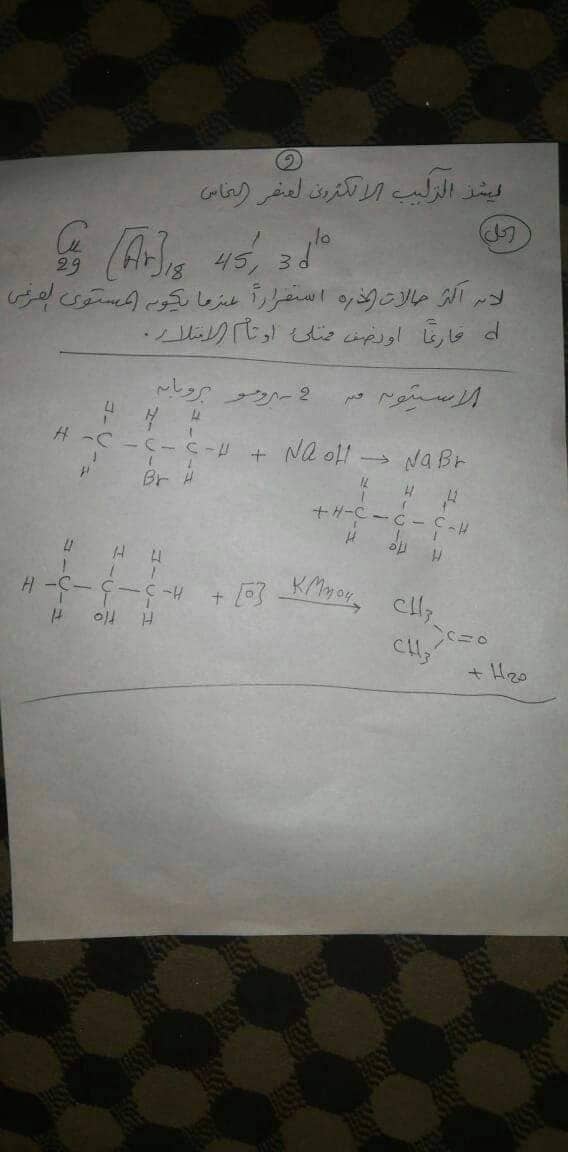 ٩
يشذ التركيب الالكترونى لعنصر النحاس
الحل
Cu 29 [Ar]18 4S1, 3d10
لانه أكثر حالات الذره استقراراً عندما يكون المستوى الفرعى
d فارغاً او نصف ممتلئ او تام الامتلاء.
الاسيتون من 2-برومو بروبان
H H H
H - C - C - C - H + NaOH → NaBr
H Br H
H H H
+ H - C - C - C - H
H OH H
H H H
H - C - C - C - H + [O] KMnO4 → CH3 CH3 C=O
H OH H
+ H2O